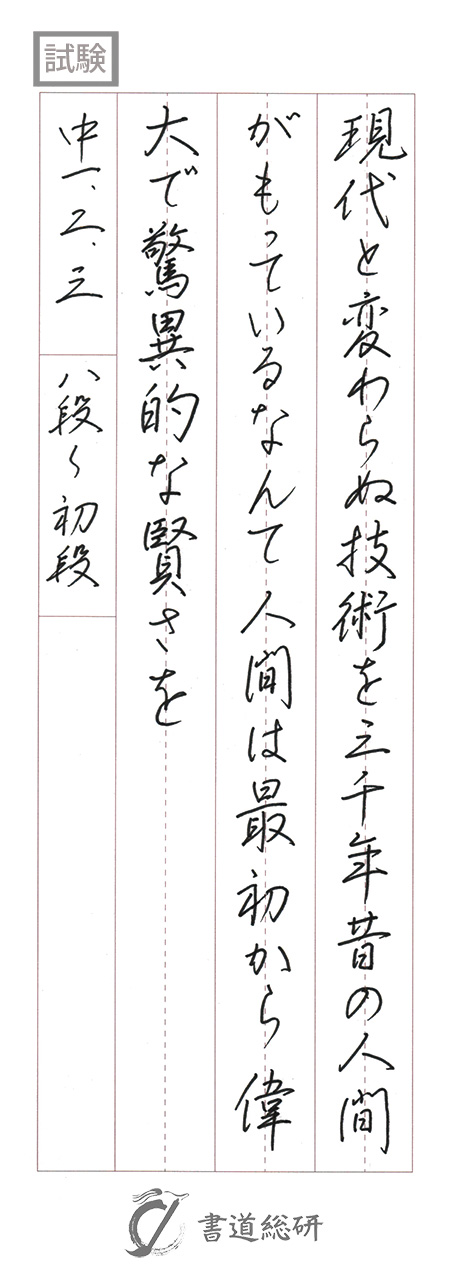 試験
現代と変わらぬ技術を三千年昔の人間
がもっているなんて人間は最初から偉
大で驚異的な賢さを
中一、二、三
八段〜初段
書道総研